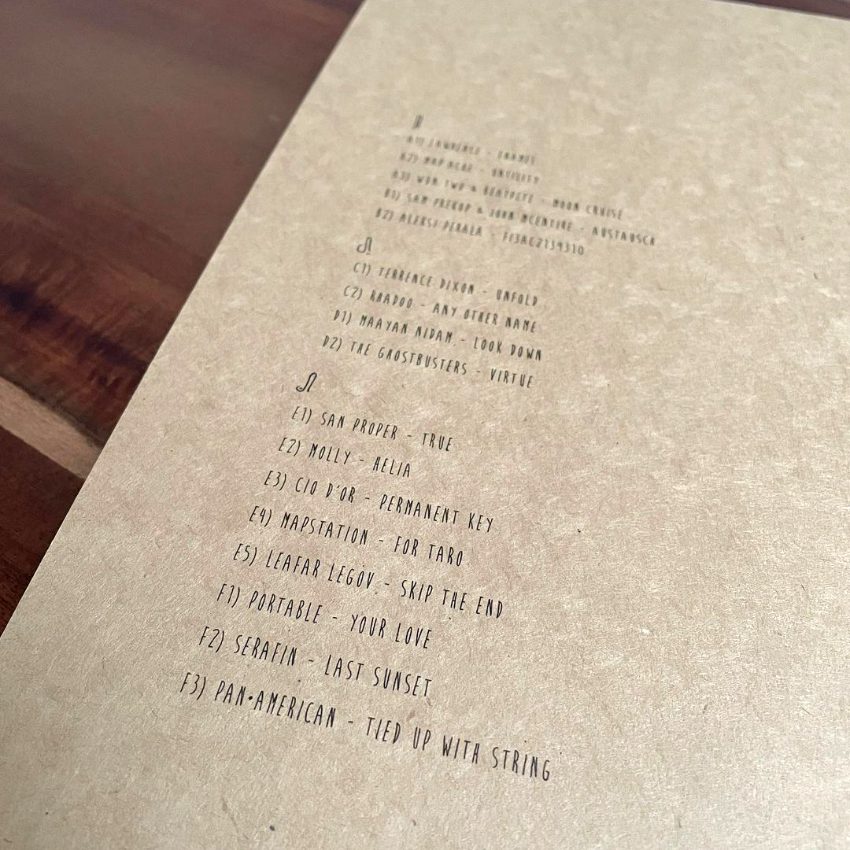 A1) LAWRENCE -
A2) MAP.ACHE -
A3) WON TWO & BEATPETE - MOON CRUISE
B1) SAM PREKOP & JOHN MCENTIRE - AUSTAUSCH
B2) ALEKSI PERÄLÄ - FI3AC2134310
C1) TERRENCE DIXON - UNFOLD
C2) RHADOO - ANY OTHER NAME
D1) MAAYAN NIDAM - LOOK DOWN
D2) THE GHOSTBUSTERS - VIRTUE
E1) SAN PROPER - TRUE
E2) MOLLY - HELIA
E3) CIO D'OR - PERMANENT KEY
E4) MAPSTATION - FOR TARO
E5) LEAFAR LEGOV - SKIP THE END
F1) PORTABLE - YOUR LOVE
F2) SERAFIN - LAST SUNSET
F3) PAN•AMERICAN - TIED UP WITH STRING